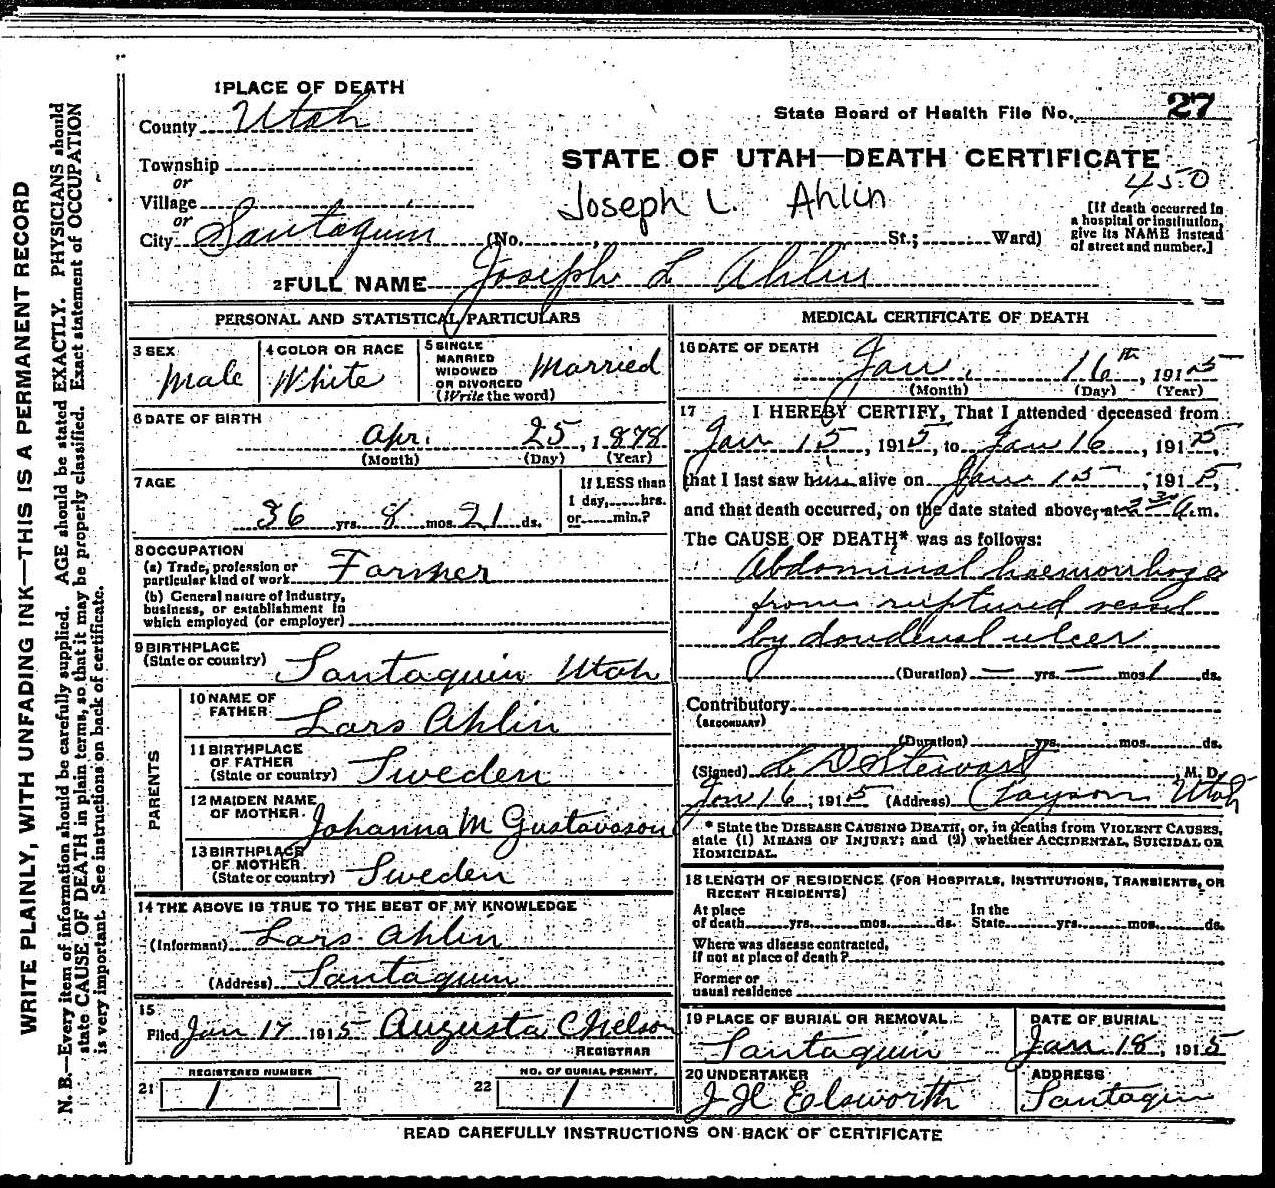 WRITE PLAINLY, WITH UNFADING INK—THIS IS A PERMANENT RECORD
N. B.—Every item of information should be carefully supplied. AGE should be stated EXACTLY. PHYSICIANS should
state CAUSE OF DEATH in plain terms, so that it may be properly classified. Exact statement of OCCUPATION
is very important. See instructions on back of certificate.
1 PLACE OF DEATH
County Utah
State Board of Health File No. 27
Township
STATE OF UTAH—DEATH CERTIFICATE
450
or
Village
Joseph L. Ahlin
or
City Santaquin (No. , St.; Ward)
[If death occurred in
a hospital or institution,
give its NAME instead
of street and number.]
2 FULL NAME Joseph L Ahlin
PERSONAL AND STATISTICAL PARTICULARS
3 SEX
Male
4 COLOR OR RACE
White
5 SINGLE
MARRIED
WIDOWED
OR DIVORCED
(Write the word)
Married
6 DATE OF BIRTH
Apr. 25, 1878
(Month) (Day) (Year)
7 AGE
36 yrs. 8 mos. 21 ds.
If LESS than
1 day, hrs.
or min.?
8 OCCUPATION
(a) Trade, profession or
particular kind of work Farmer
(b) General nature of industry,
business, or establishment in
which employed (or employer)
9 BIRTHPLACE
(State or country) Santaquin Utah
PARENTS
10 NAME OF
FATHER Lars Ahlin
11 BIRTHPLACE
OF FATHER
(State or country) Sweden
12 MAIDEN NAME
OF MOTHER Johanna M Gustavason
13 BIRTHPLACE
OF MOTHER
(State or country) Sweden
14 THE ABOVE IS TRUE TO THE BEST OF MY KNOWLEDGE
(Informant) Lars Ahlin
(Address) Santaquin
15
Filed Jan 17 1915 Augusta C Nelson
REGISTRAR
REGISTERED NUMBER
21 1
NO. OF BURIAL PERMIT.
22 1
MEDICAL CERTIFICATE OF DEATH
16 DATE OF DEATH
Jan. 16th, 1915
(Month) (Day) (Year)
17 I HEREBY CERTIFY, That I attended deceased from
Jan 15, 1915, to Jan 16, 1915,
that I last saw him alive on Jan 15, 1915,
and that death occurred, on the date stated above, at 2 30 A.m.
The CAUSE OF DEATH* was as follows:
Abdominal haemorrhage
from ruptured vessel
by doudenal ulcer
(Duration) — yrs. — mos. 1 ds.
Contributory
(SECONDARY)
(Duration) yrs. mos. ds.
(Signed) D Stewart, M. D.
Jan 16, 1915 (Address) Payson Utah
* State the DISEASE CAUSING DEATH, or, in deaths from VIOLENT CAUSES,
state (1) MEANS OF INJURY; and (2) whether ACCIDENTAL, SUICIDAL OR
HOMICIDAL.
18 LENGTH OF RESIDENCE (FOR HOSPITALS, INSTITUTIONS, TRANSIENTS, OR
RECENT RESIDENTS)
At place In the
of death yrs. mos. ds. State yrs. mos. ds.
Where was disease contracted,
If not at place of death?
Former or
usual residence
19 PLACE OF BURIAL OR REMOVAL
Santaquin
DATE OF BURIAL
Jan. 18, 1915
20 UNDERTAKER
J H Elsworth
ADDRESS
Santaquin
READ CAREFULLY INSTRUCTIONS ON BACK OF CERTIFICATE